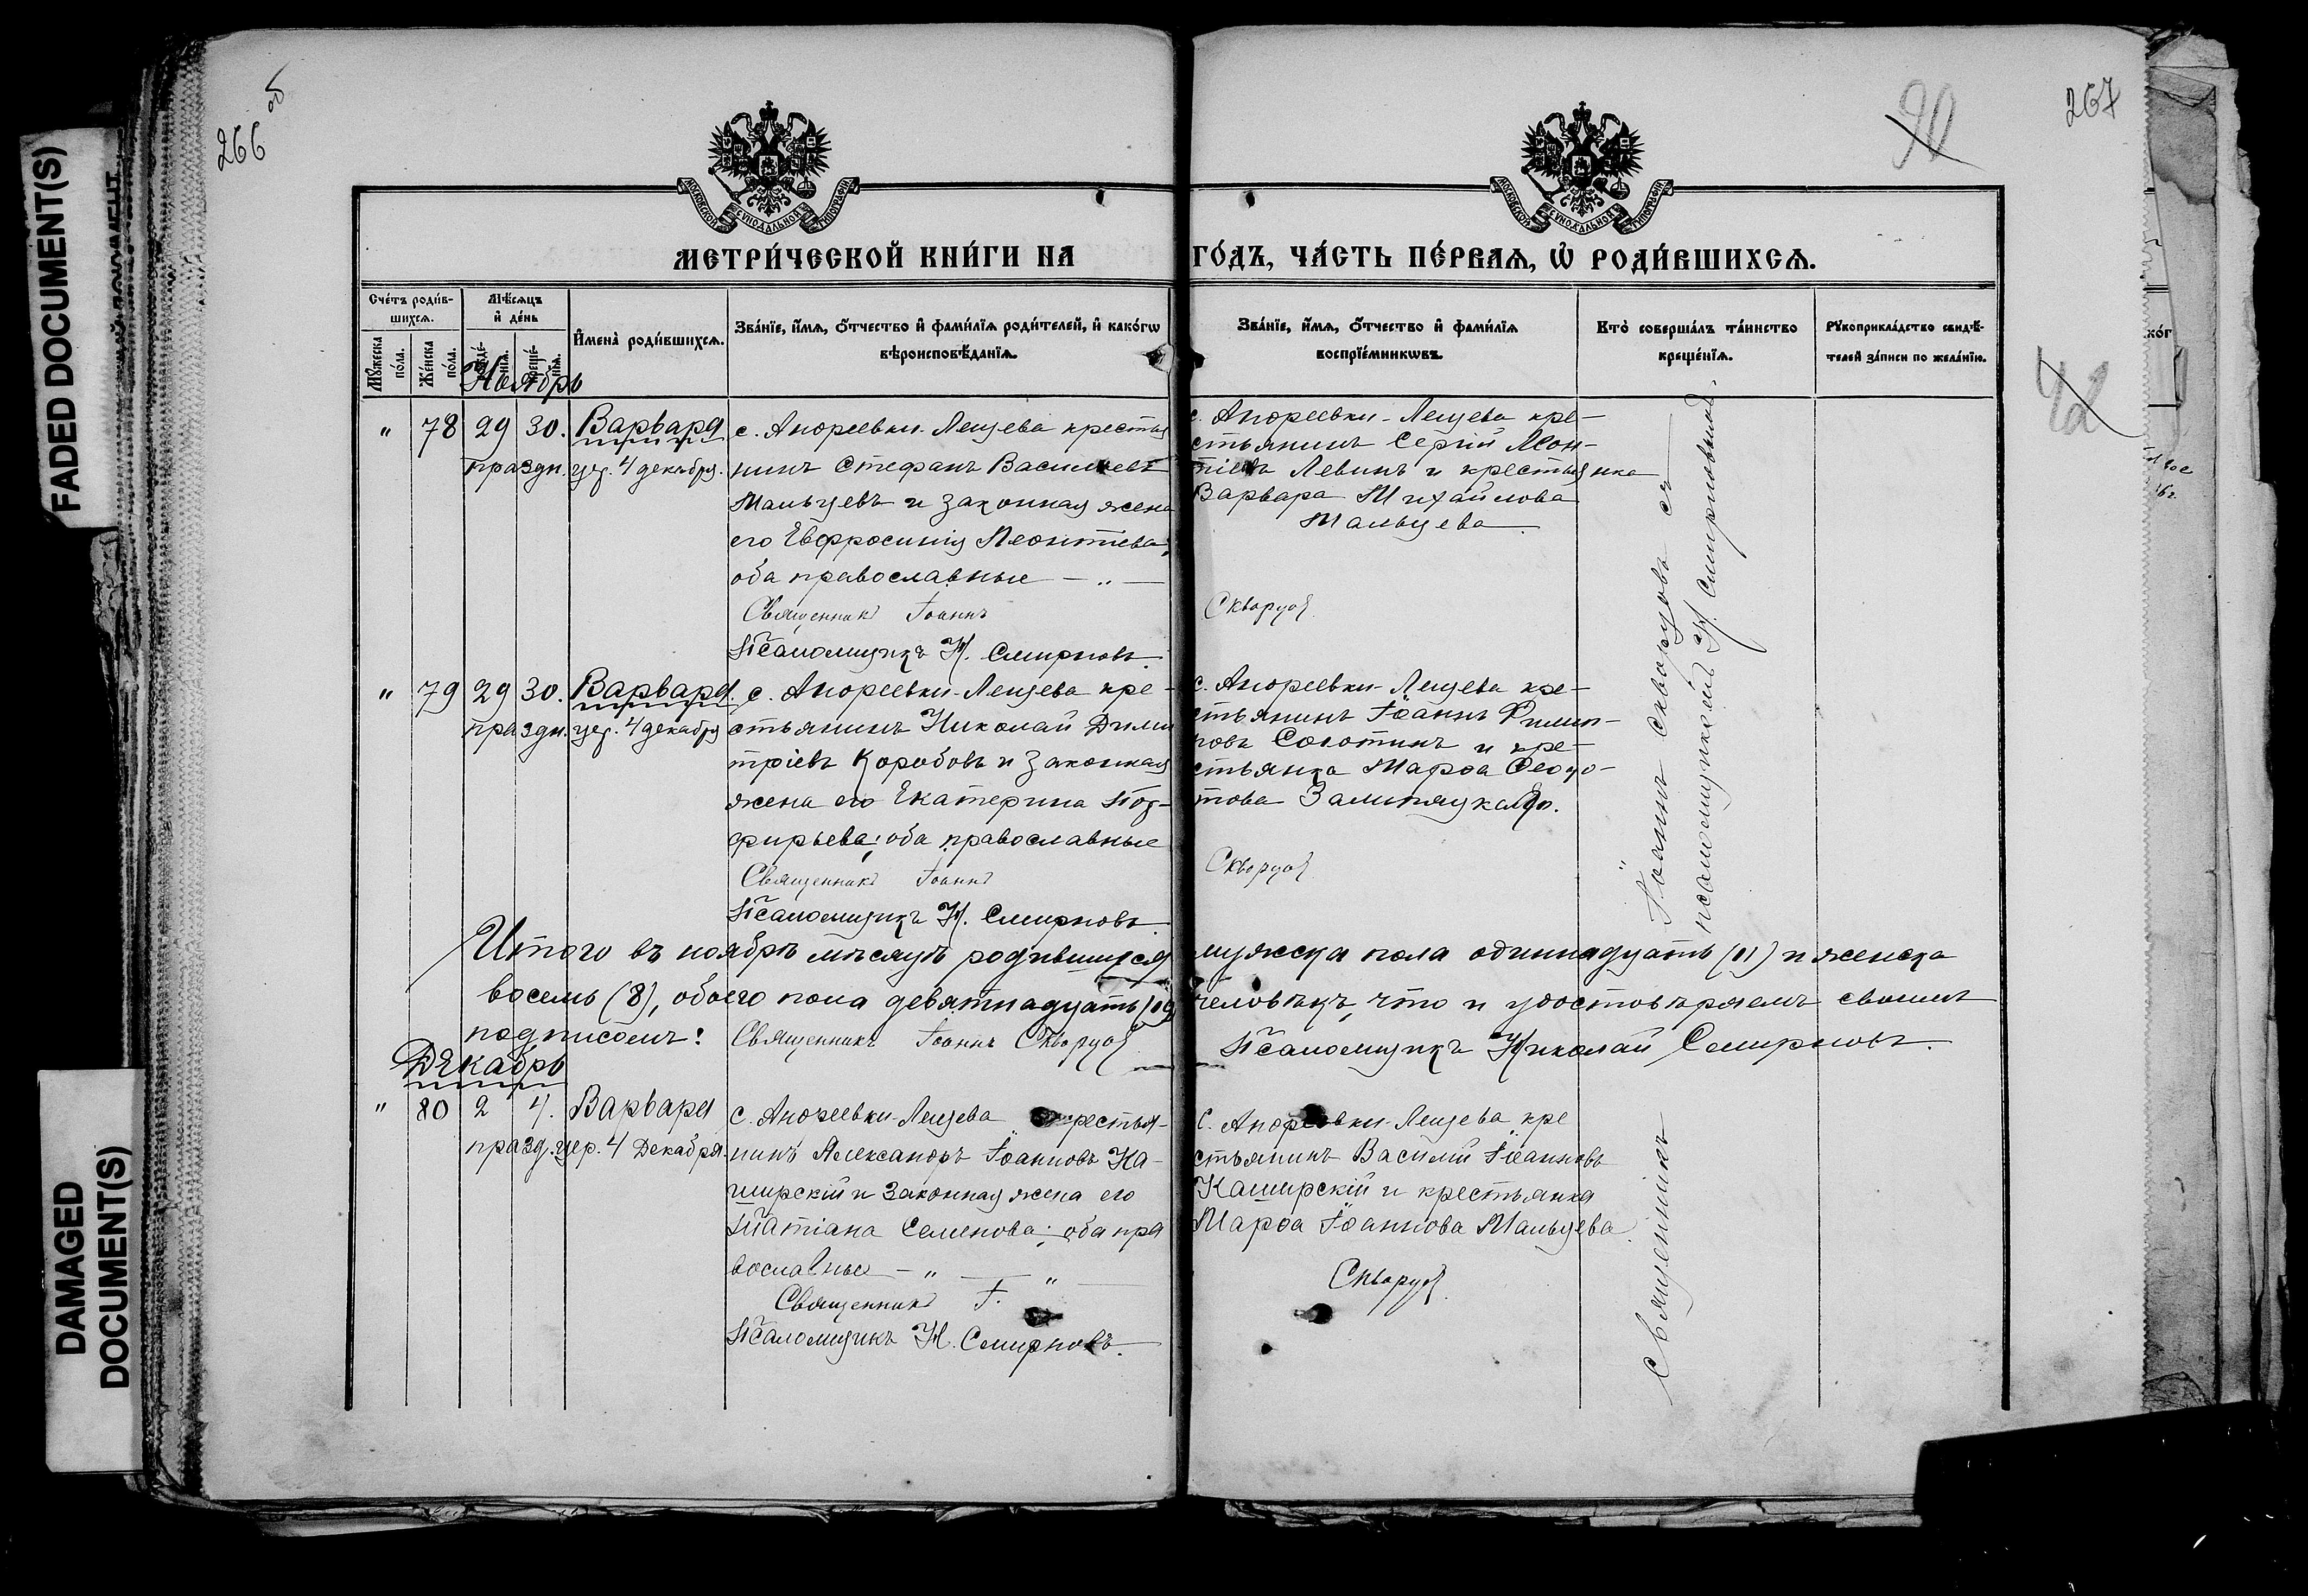 FADED DOCUMENT(S)
DAMAGED DOCUMENT(S)
266 об
90
267
42
МЕТРИ́ЧЕСКОЙ КНИ́ГИ НА ГО́ДЪ, ЧА́СТЬ ПЕ́РВАЯ, Ѡ҆ РОДИ́ВШИХСЯ.
Сче́тъ роди́в-
шихся.
Мꙋ́жеска по́ла.
Же́нска по́ла.
Мѣ́сяцъ
и҆ де́нь
И҆мена̀ роди́вшихся.
Зва́нїе, и҆́мя, ѻ҆́тчество и҆ фами́лїя роди́телей, и҆ како́гѡ
вѣроисповѣ́данїя.
Зва́нїе, и҆́мя, ѻ҆́тчество и҆ фами́лїя
воспрїе́мникѡвъ.
Кто̀ соверша́лъ та́инство
креще́нїя.
Рꙋкоприкла́дство свидѣ́-
телей за́писи по жела́нїю.
Ноябрь
" 78 29 30. Варвара
праздн. цер. 4 декабря.
с. Андреевки-Лещева крестья
нинъ Стефанъ Васильевъ
Мальцевъ и законная жена
его Евфросинія Леонтіева;
оба православные — " —
Священникъ Іоаннъ
Псаломщикъ Н. Смирновъ.
с. Андреевки-Лещева кре-
стьянинъ Сергій Леон-
тіевъ Левинъ и крестьянка
Варвара Михайлова
Мальцева
Скворцов
" 79 29 30. Варвара.
праздн. цер. 4 декабря
с. Андреевки-Лещева кре-
стьянинъ Николай Дими
тріевъ Коробовъ и законная
жена его Екатерина Пор-
фирьева; оба православные
Священникъ Іоаннъ
Псаломщикъ Н. Смирновъ
с. Андреевки-Лещева кре-
стьянинъ Іоаннъ Филип-
повъ Солотинъ и кре-
стьянка Марѳа Ѳедо-
това
Скворцов
Іоаннъ Скворцовъ съ
псаломщикомъ Н. Смирновымъ
Итого въ ноябрѣ мѣсяцѣ родившихся мужска пола одиннадцать (11) и женска
восемь (8), обоего пола девятнадцать (19) человѣкъ, что и удостовѣряемъ своимъ
подписомъ: Священникъ Іоаннъ Скворцов Псаломщикъ Николай Смирновъ.
Декабрь
" 80 2 4. Варвара
празд. цер. 4 Декабря.
с. Андреевки-Лещева крестья-
нинъ Александръ Іоанновъ Ка-
ширскій и законная жена его
Татіана Семенова; оба пра
вославные — " — " —
Священникъ І.
Псаломщикъ Н. Смирновъ.
с. Андреевки-Лещева кре
стьянинъ Василій Іоанновъ
Каширскій и крестьянка
Марѳа Іоаннова Мальцева.
Скворцов
Священникъ